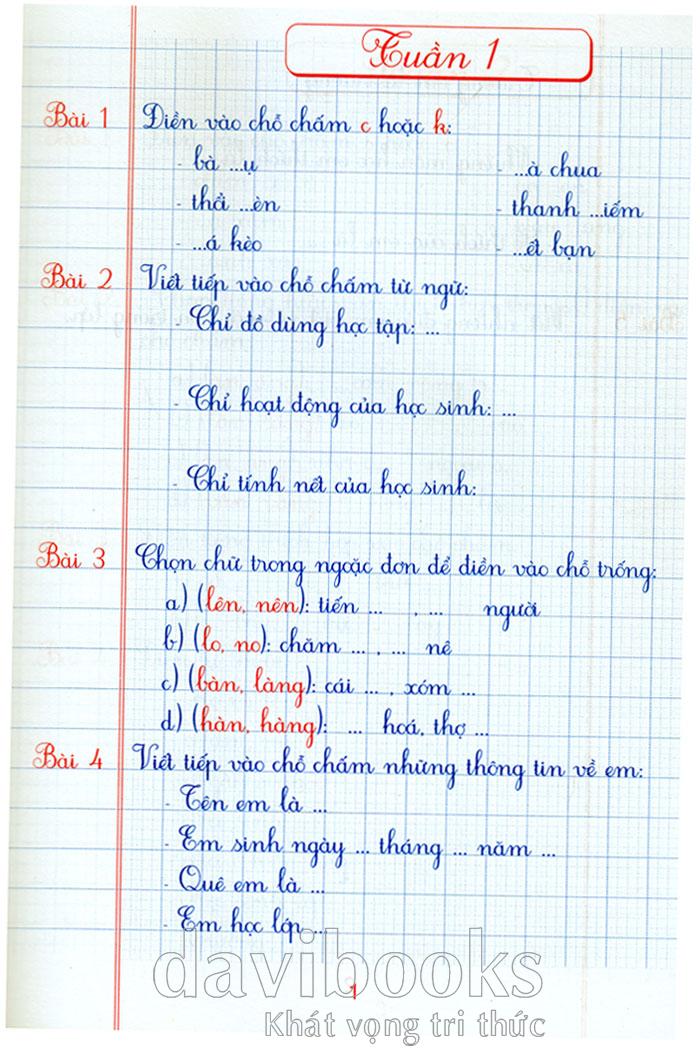 Tuần 1
Bài 1 Điền vào chỗ chấm c hoặc k:
- bà ...ụ - ...à chua
- thả ...èn - thanh ...iếm
- ...á kèo - ...ết bạn
Bài 2 Viết tiếp vào chỗ chấm từ ngữ:
- Chỉ đồ dùng học tập: ...
- Chỉ hoạt động của học sinh: ...
- Chỉ tính nết của học sinh:
Bài 3 Chọn chữ trong ngoặc đơn để điền vào chỗ trống:
a) (lên, nên): tiến ... , ... người
b) (lo, no): chăm ... , ... nê
c) (bàn, làng): cái ... , xóm ...
d) (hàn, hàng): ... hoá, thợ ...
Bài 4 Viết tiếp vào chỗ chấm những thông tin về em:
- Tên em là ...
- Em sinh ngày ... tháng ... năm ...
- Quê em là ...
- Em học lớp ...
davibooks
1
Khát vọng tri thức